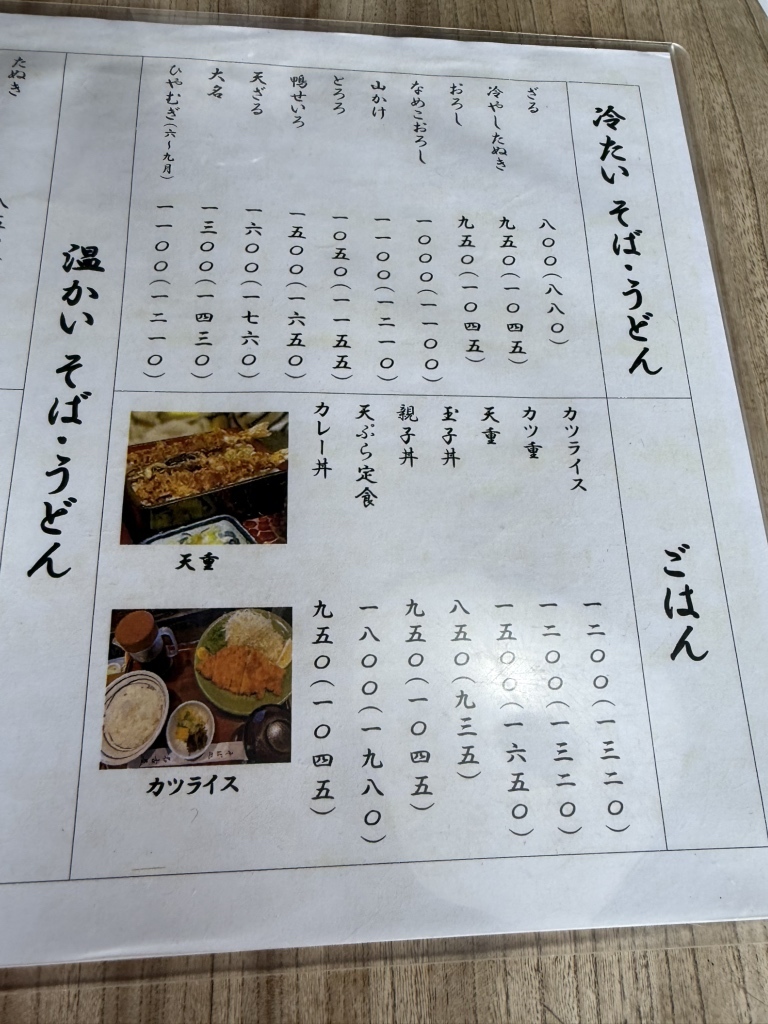 冷たい そば・うどん
ざる 八〇〇(八八〇)
冷やしたぬき 九五〇(一〇四五)
おろし 九五〇(一〇四五)
なめこおろし 一〇〇〇(一一〇〇)
山かけ 一一〇〇(一二一〇)
とろろ 一〇五〇(一一五五)
鴨せいろ 一五〇〇(一六五〇)
天ざる 一六〇〇(一七六〇)
大名 一三〇〇(一四三〇)
ひやむぎ(六〜九月) 一一〇〇(一二一〇)
ごはん
カツライス 一二〇〇(一三二〇)
カツ重 一二〇〇(一三二〇)
天重 一五〇〇(一六五〇)
玉子丼 八五〇(九三五)
親子丼 九五〇(一〇四五)
天ぷら定食 一八〇〇(一九八〇)
カレー丼 九五〇(一〇四五)
天重
カツライス
温かい そば・うどん
たぬき